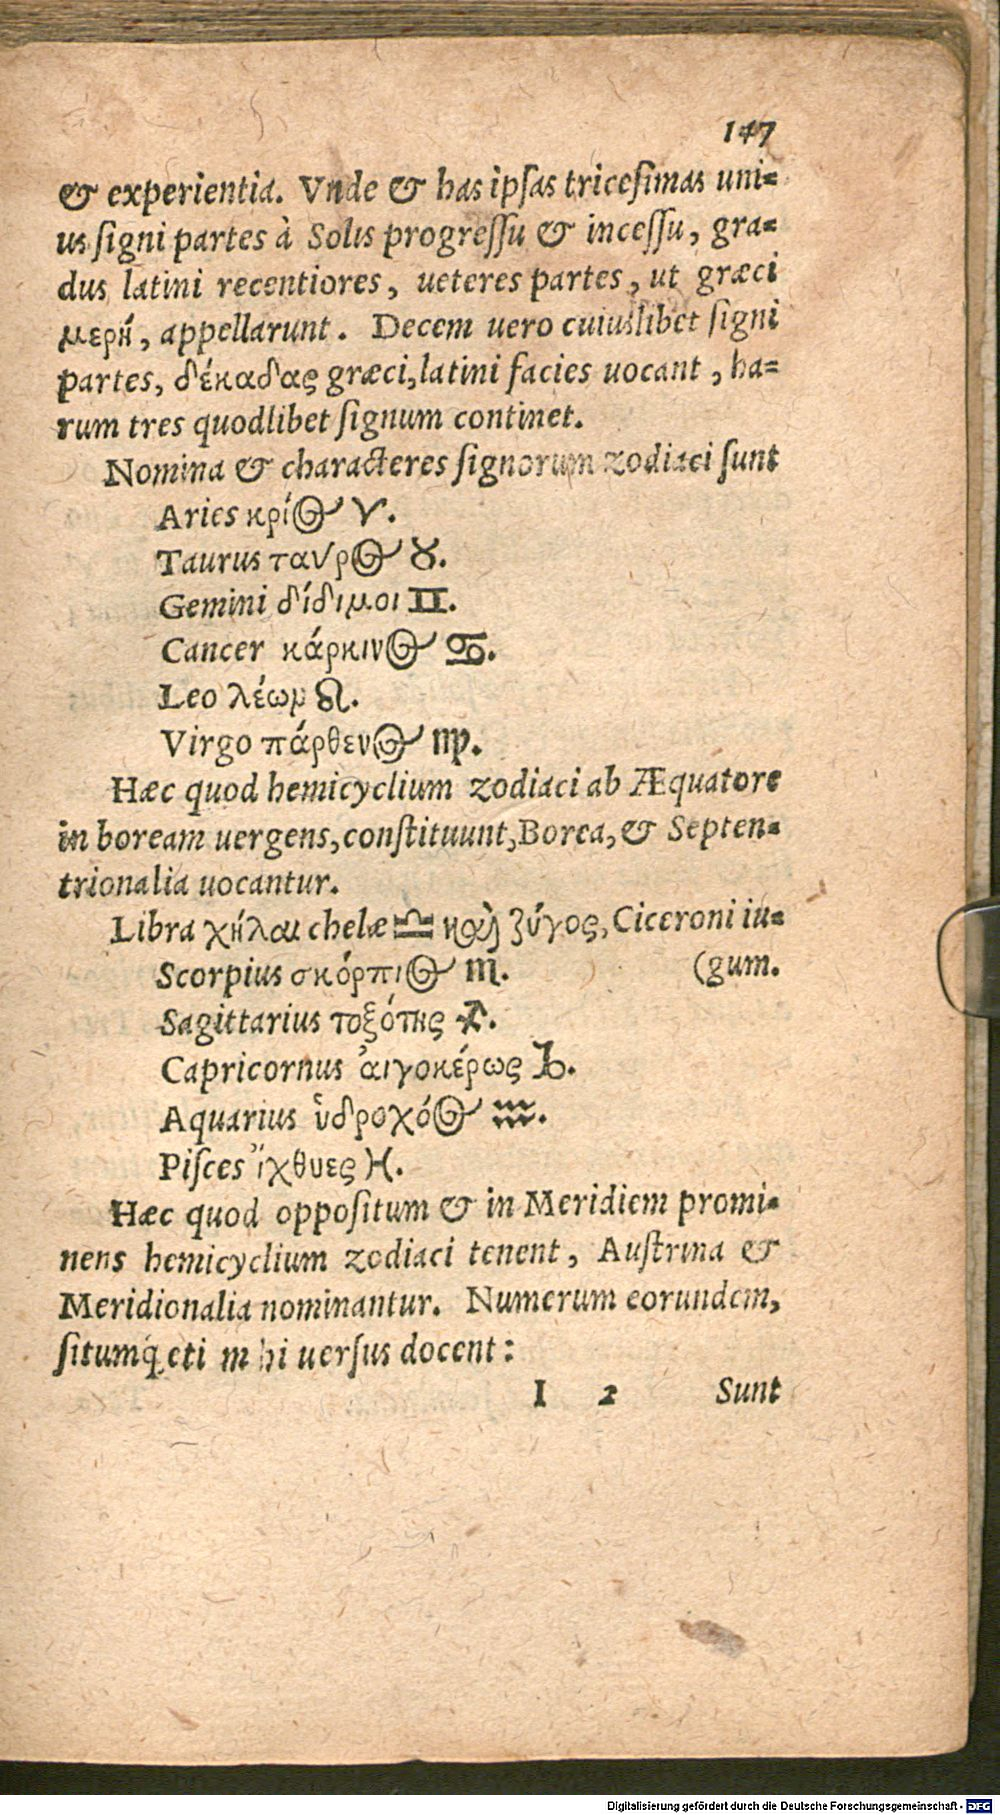 147
& experientia. Vnde & has ipſas triceſimas uni-
us ſigni partes à Solis progreſſu & inceſſu, gra-
dus latini recentiores, ueteres partes, ut græci
μερή, appellarunt. Decem uero cuiuslibet ſigni
partes, δέκαδας græci, latini facies uocant, ha-
rum tres quodlibet ſignum continet.
Nomina & characteres ſignorum zodiaci ſunt
Aries κρίος ♈.
Taurus ταυρος ♉.
Gemini δίδιμοι ♊.
Cancer κάρκινος ♋.
Leo λέωμ ♌.
Virgo πάρθενος ♍.
Hæc quod hemicyclium zodiaci ab Æquatore
in boream uergens, conſtituunt, Borea, & Septen-
trionalia uocantur.
Libra χήλαι chelæ ♎ καὶ ζύγος, Ciceroni iu-
Scorpius σκόρπιος ♏. (gum.
Sagittarius τοξότης ♐.
Capricornus ἀιγοκέρως ♑.
Aquarius ὑδροχόος ♒.
Piſces ἴχθυες ♓.
Hæc quod oppoſitum & in Meridiem promi-
nens hemicyclium zodiaci tenent, Auſtrina &
Meridionalia nominantur. Numerum eorundem,
ſitumq́; eti m hi uerſus docent:
I 2 Sunt
Digitalisierung gefördert durch die Deutsche Forschungsgemeinschaft - DFG